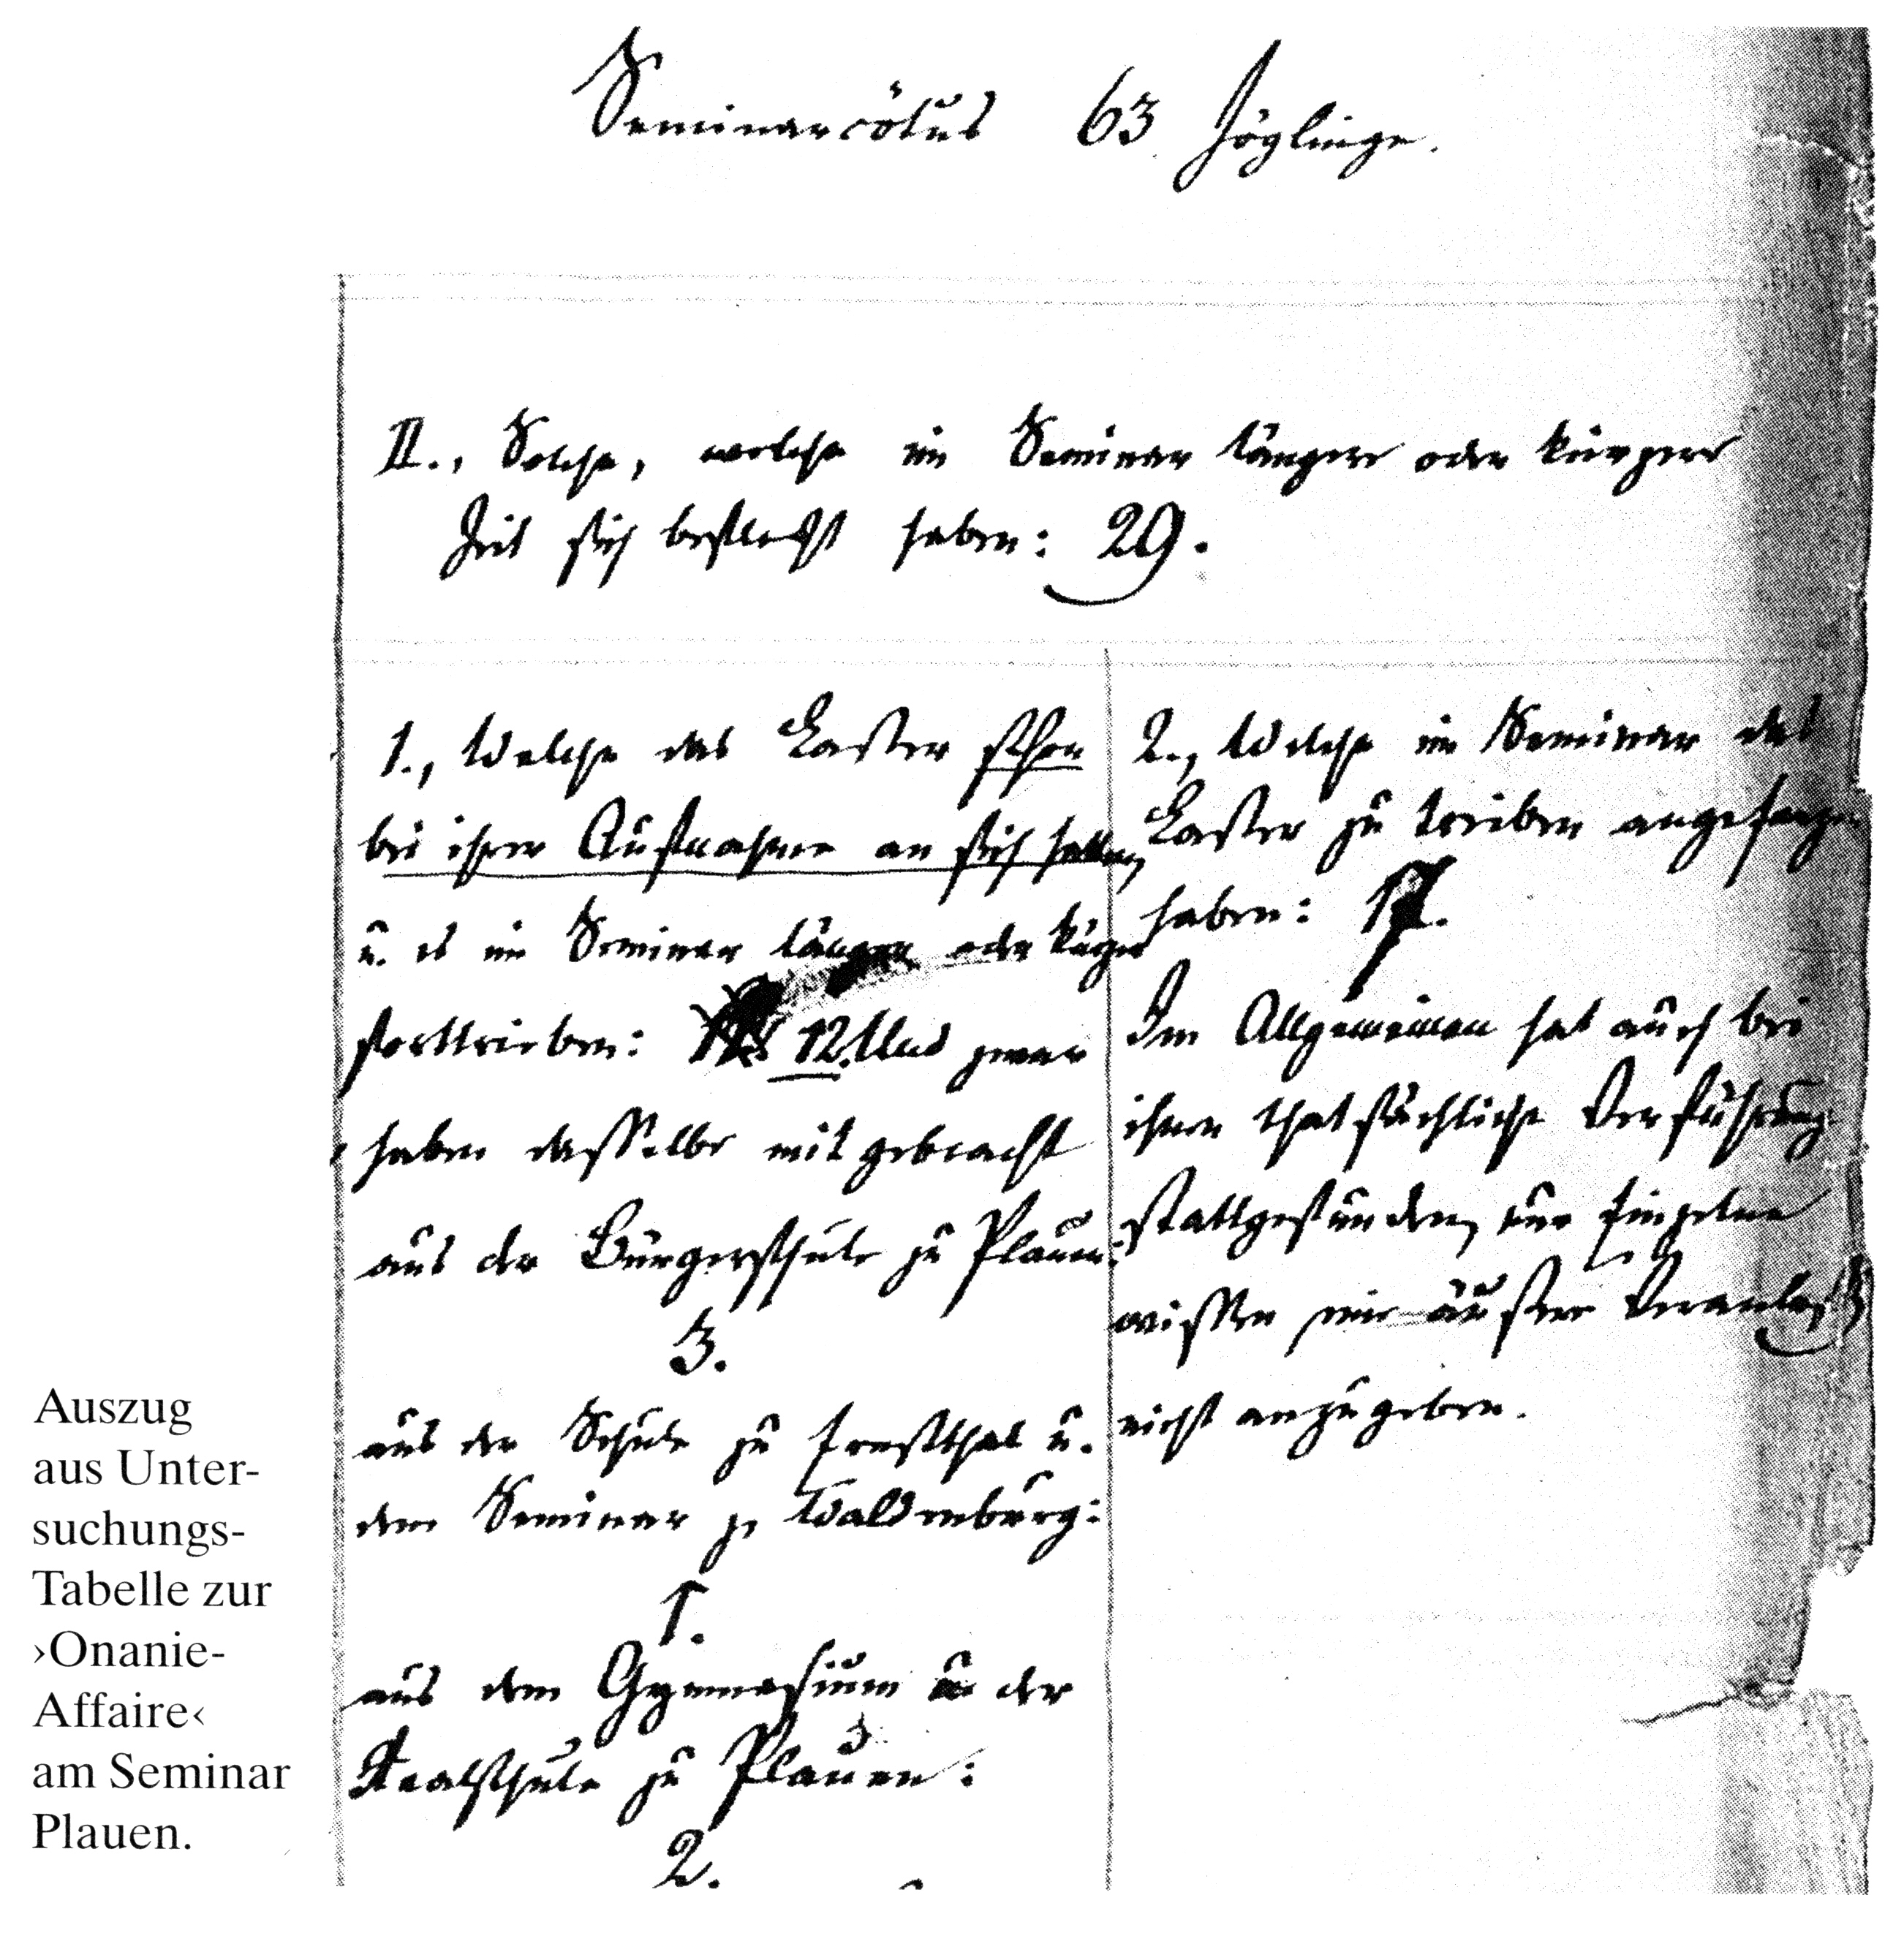 Seminarcötus 63 Zöglinge.
II., Solche, welche im Seminar längere oder kürzere
Zeit sich befleckt haben: 29.
1., Welche das Laster schon
bei ihrer Aufnahme an sich hatten,
u. es im Seminar länger oder kürzer
forttrieben: 12. Und zwar
haben dasselbe mitgebracht
aus der Bürgerschule zu Plauen:
3.
aus der Schule zu Ernstthal u.
dem Seminar zu Waldenburg:
1.
aus dem Gymnasium u. der
Realschule zu Plauen:
2.
2., Welche im Seminar das
Laster zu treiben angefangen
haben: 17.
Im Allgemeinen hat auch bei
ihnen thatsächliche Verführung
stattgefunden, nur Einzelne
wissen eine äußere
nicht anzugeben.
Auszug
aus Unter-
suchungs-
Tabelle zur
›Onanie-
Affaire‹
am Seminar
Plauen.